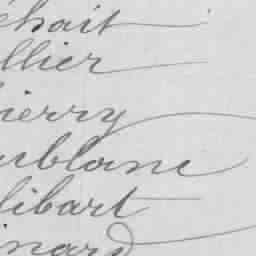 éhait
llier
ierry
ublanc
libart
inard